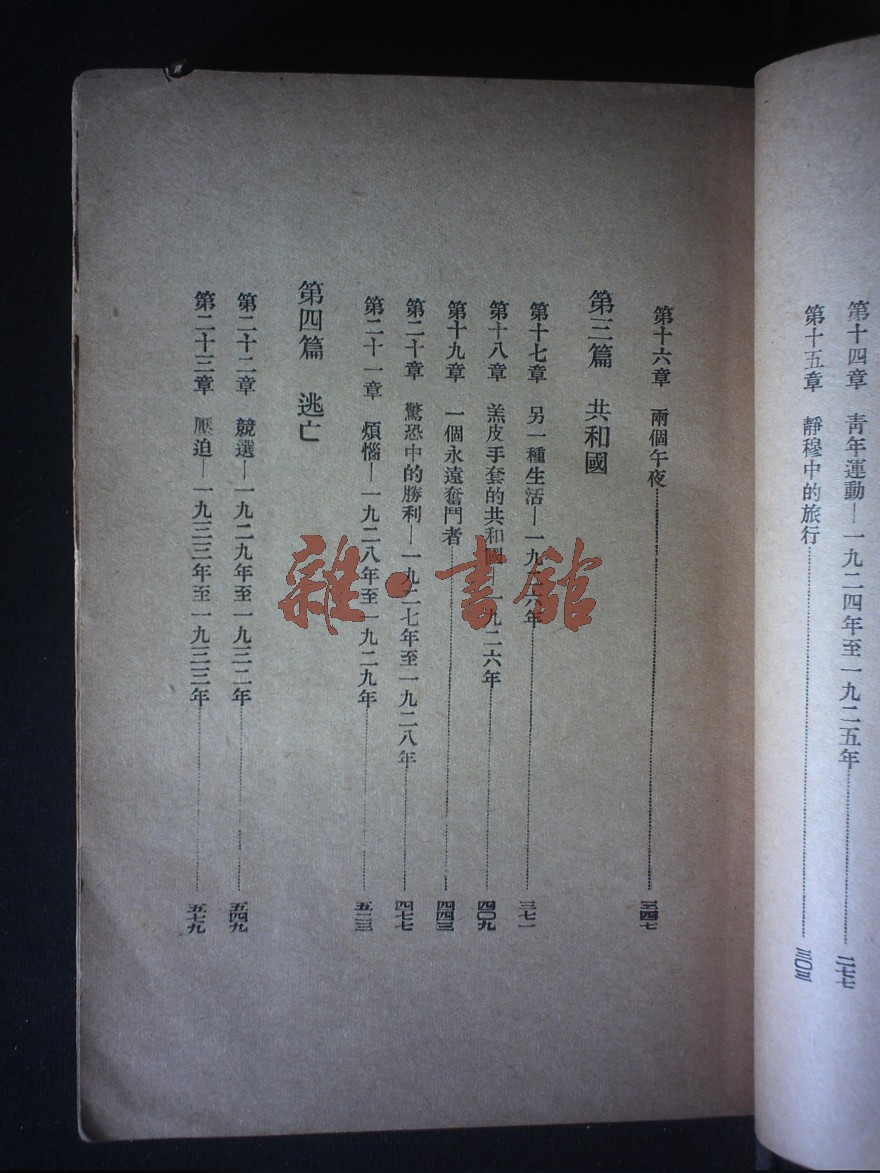 第十四章 靑年運動—一九二四年至一九二五年 二七七
第十五章 靜穆中的旅行 三〇三
第十六章 兩個午夜 三四七
第三篇 共和國
第十七章 另一種生活—一九二六年 三七一
第十八章 羔皮手套的共和國—一九二六年 四〇九
第十九章 一個永遠奮鬥者 四四三
第二十章 驚恐中的勝利—一九二七年至一九二八年 四七七
第二十一章 煩惱—一九二八年至一九二九年 五二三
第四篇 逃亡
第二十二章 競選—一九二九年至一九三二年 五四九
第二十三章 壓迫—一九三三年至一九三三年 五七九
雜·書舘